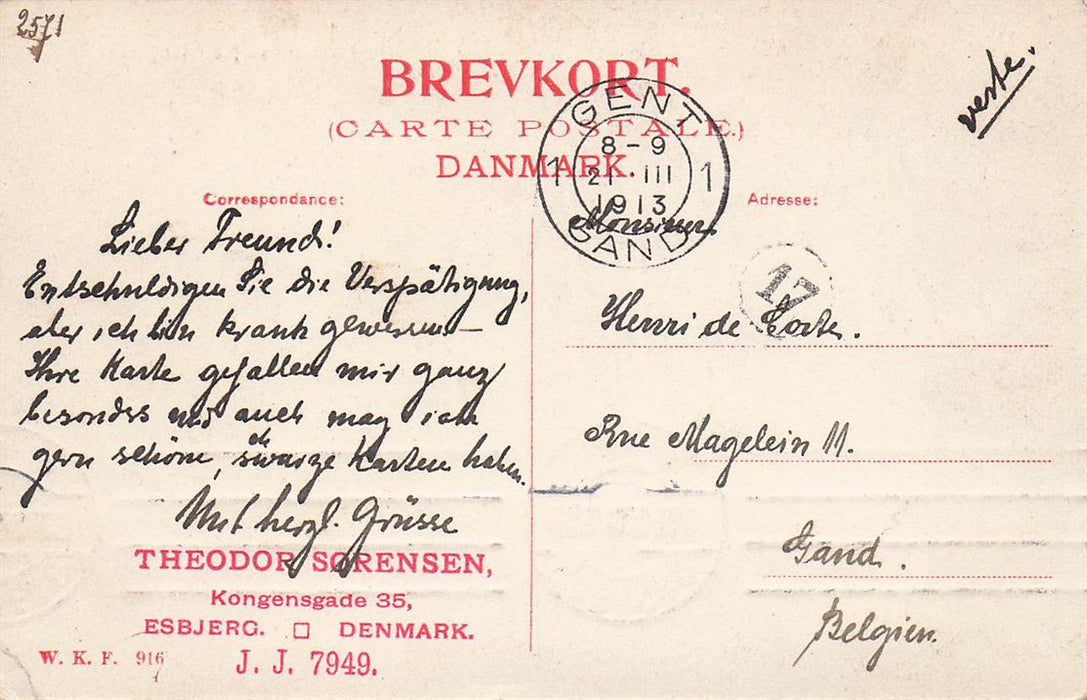 2571
BREVKORT.
(CARTE POSTALE.)
DANMARK.
verte.
GENT
8-9
1 21 III 1
1913
GAND
Correspondance:
Adresse:
Lieber Freund!
Entschuldigen Sie die Verspätigung,
aber ich bin krank gewesen —
Ihre Karte gefallen mir ganz
besonders und auch mag ich
gern schöne, schwarze Karten haben.
Mit herzl. Grüsse
THEODOR SØRENSEN,
Kongensgade 35,
ESBJERG. □ DENMARK.
J. J. 7949.
W. K. F. 916
Monsieur
17
Henri de
Rue Magelein 11.
Gand.
Belgien.